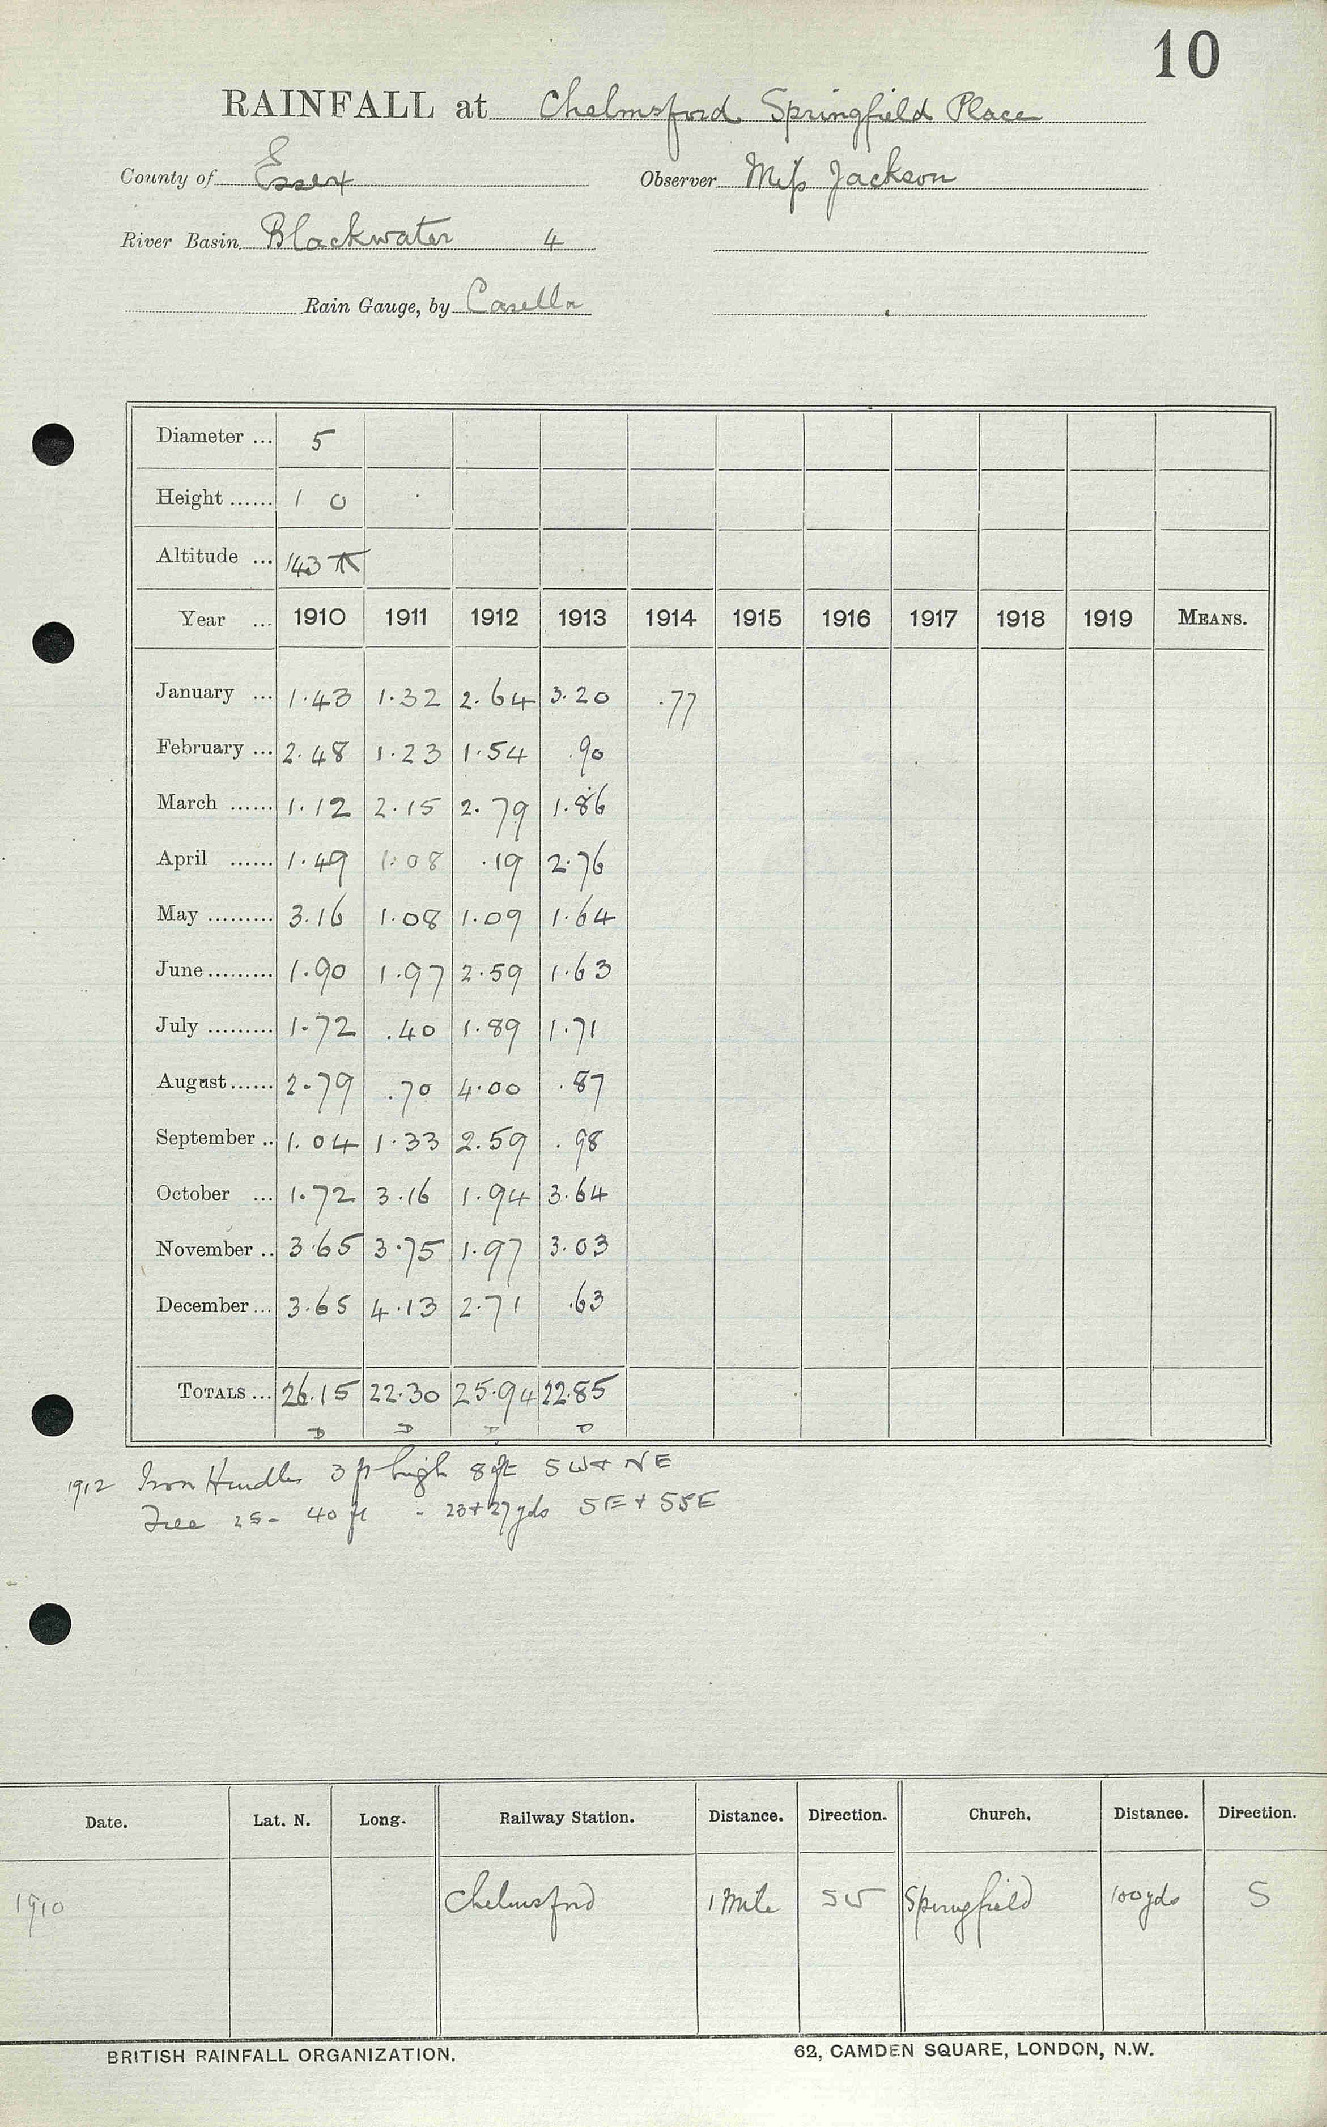 10
RAINFALL at Chelmsford Springfield Place
County of Essex Observer Miss Jackson
River Basin Blackwater 4
Rain Gauge, by Casella
Diameter ... 5
Height ...... 1 0
Altitude ... 143 ft
Year ... 1910 1911 1912 1913 1914 1915 1916 1917 1918 1919 MEANS.
January ... 1.43 1.32 2.64 3.20 .77
February ... 2.48 1.23 1.54 .90
March ...... 1.12 2.15 2.79 1.86
April ...... 1.49 1.08 .19 2.76
May ......... 3.16 1.08 1.09 1.64
June ......... 1.90 1.97 2.59 1.63
July ......... 1.72 .40 1.89 1.71
August ...... 2.79 .70 4.00 .87
September .. 1.04 1.33 2.59 .98
October ... 1.72 3.16 1.94 3.64
November .. 3.65 3.75 1.97 3.03
December ... 3.65 4.13 2.71 .63
TOTALS ... 26.15 22.30 25.94 22.85
D D D D
1912 Iron Hurdles 3 ft high 8 ft SW + NE
Tree 25 - 40 ft - 23 + 27 yds SE + SSE
Date. Lat. N. Long. Railway Station. Distance. Direction. Church. Distance. Direction.
1910 Chelmsford 1 Mile SW Springfield 100 yds S
BRITISH RAINFALL ORGANIZATION. 62, CAMDEN SQUARE, LONDON, N.W.